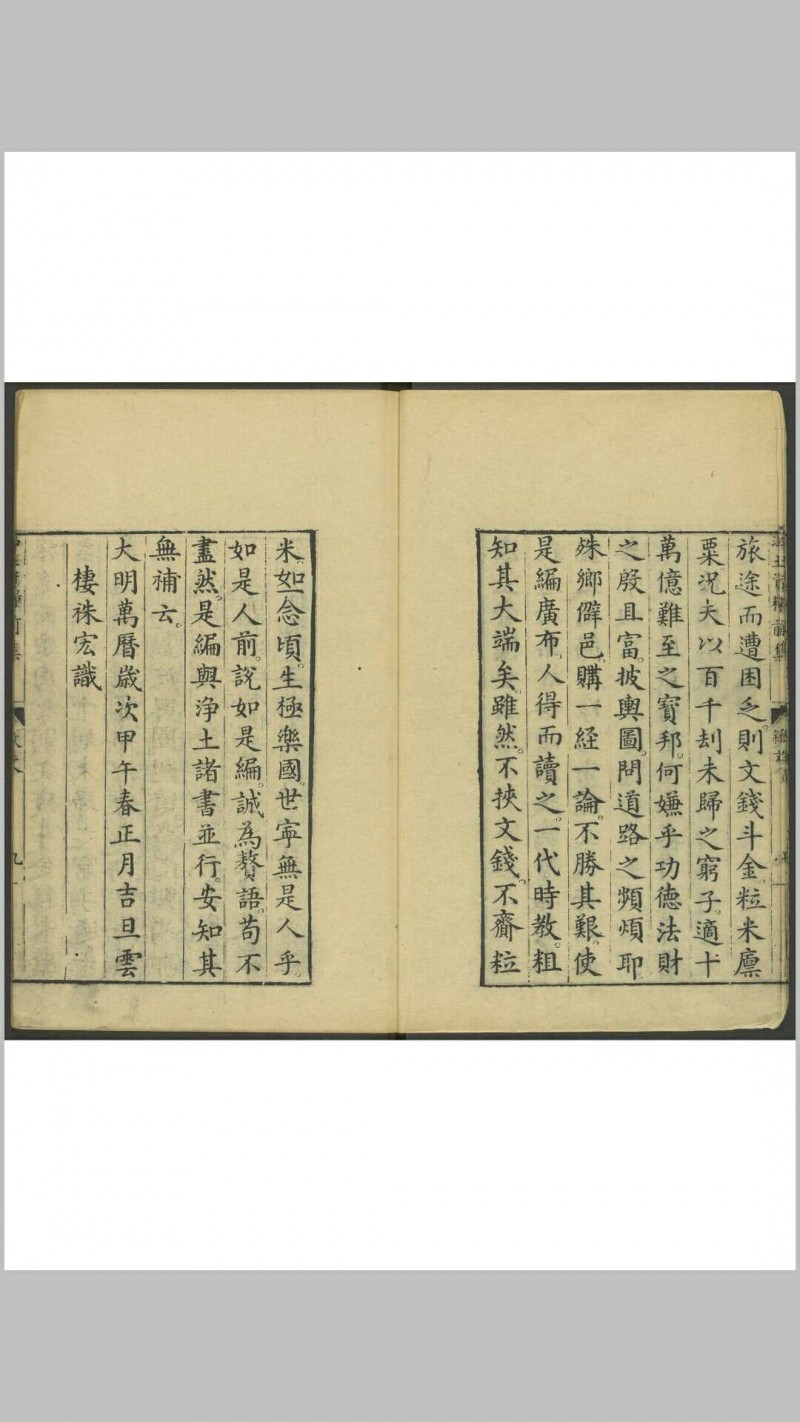 旅途而遭困乏。則文錢斗金。粒米廪
粟。況夫以百千刦未歸之窮子。適十
萬億難至之寶邦。何嫌乎功德法財
之殷且富。披輿圖。問道路之頻煩耶
殊鄉僻邑。購一経一論。不勝其艱。使
是編廣布。人得而讀之。一代時教。粗
知其大端矣。雖然。不挾文錢。不齎粒
米。如一念頃。生極樂國。世寧無是人乎。
如是人前。說如是編。誠為贅語。苟不
盡然。是編與淨土諸書並行。安知其
無補云。
大明萬曆歳次甲午春正月吉旦雲
棲袾宏識